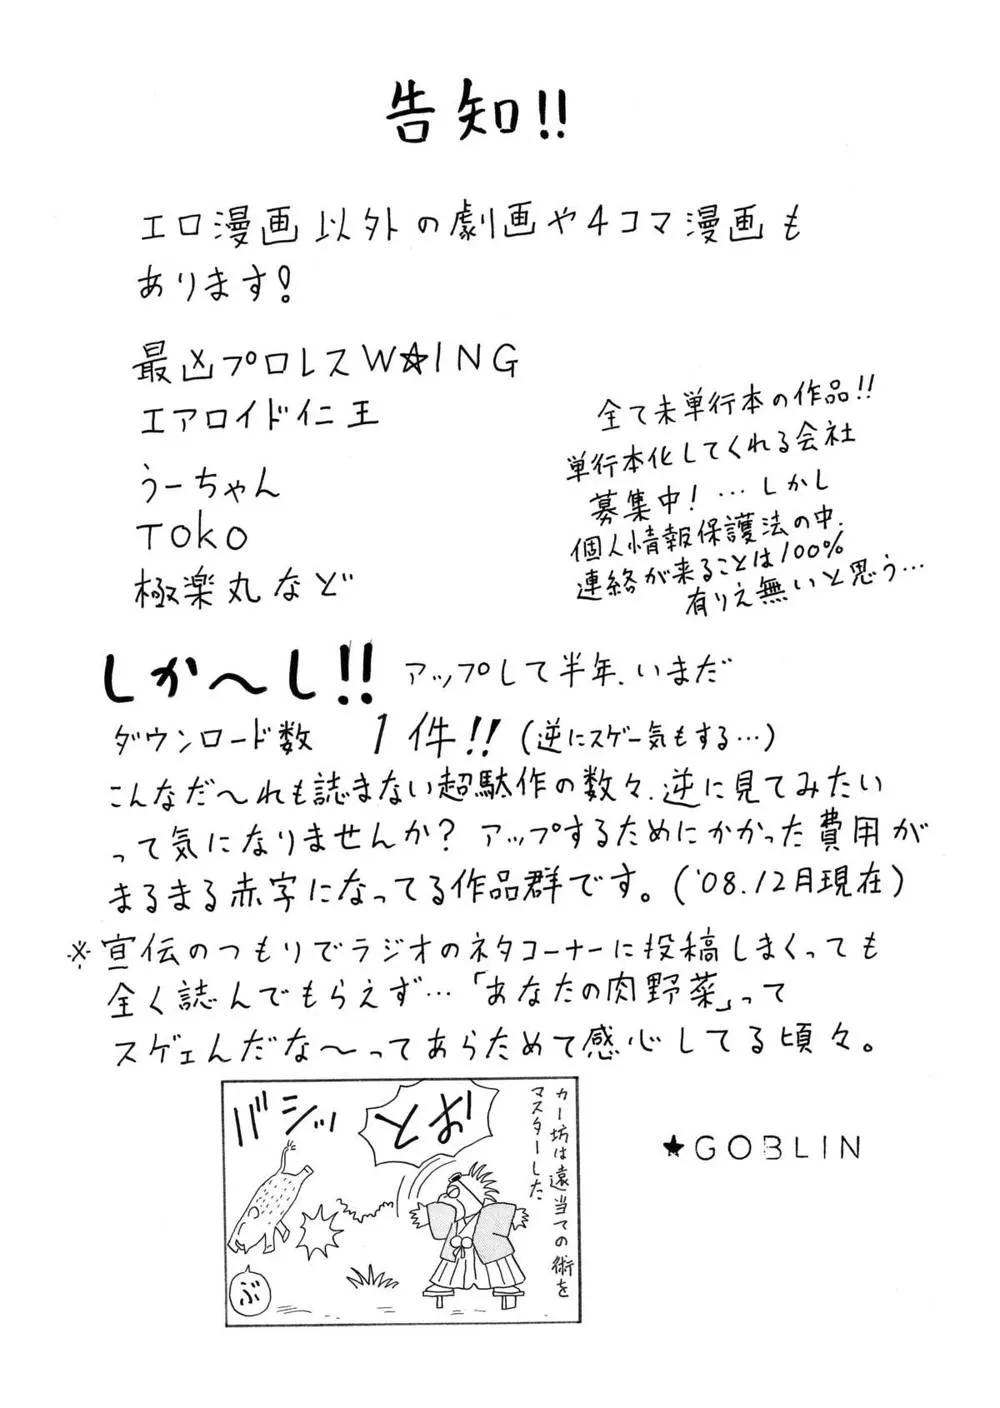 告知!!
エロ漫画以外の劇画や4コマ漫画も
あります!
最凶プロレスW★ING
エアロイド仁王
うーちゃん
TOKO
極楽丸など
全て未単行本の作品!!
単行本化してくれる会社
募集中!…しかし
個人情報保護法の中、
連絡が来ることは100%
有りえ無いと思う…
しか〜し!! アップして半年、いまだ
ダウンロード数 1件!!(逆にスゲー気もする…)
こんなだ〜れも読まない超駄作の数々、逆に見てみたい
って気になりませんか?アップするためにかかった費用が
まるまる赤字になってる作品群です。('08.12月現在)
※宣伝のつもりでラジオのネタコーナーに投稿しまくっても
全く読んでもらえず…「あなたの肉野菜」って
スゲェんだな〜ってあらためて感心してる頃々。
カー坊は遠当ての術を
マスターした
とば
バシッ
ぶ
★GOBLIN